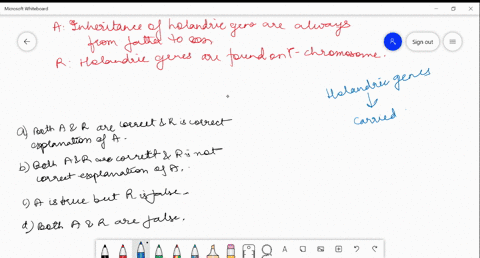 Microsoft Whiteboard
Sign out
A: Inheritance of holandric gene are always
from father to son
R: Holandric genes are found on Y-chromosome.
Holandric genes
carried
a) Both A & R are correct & R is correct
explanation of A.
b) Both A & R are correct & R is not
correct explanation of A.
c) A is true but R is false.
d) Both A & R are false.